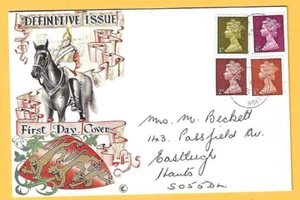 DEFINITIVE ISSUE
First Day Cover
Mrs. M. Beckett
143, Passfield Av.
Eastleigh
Hants
SO5 5DL